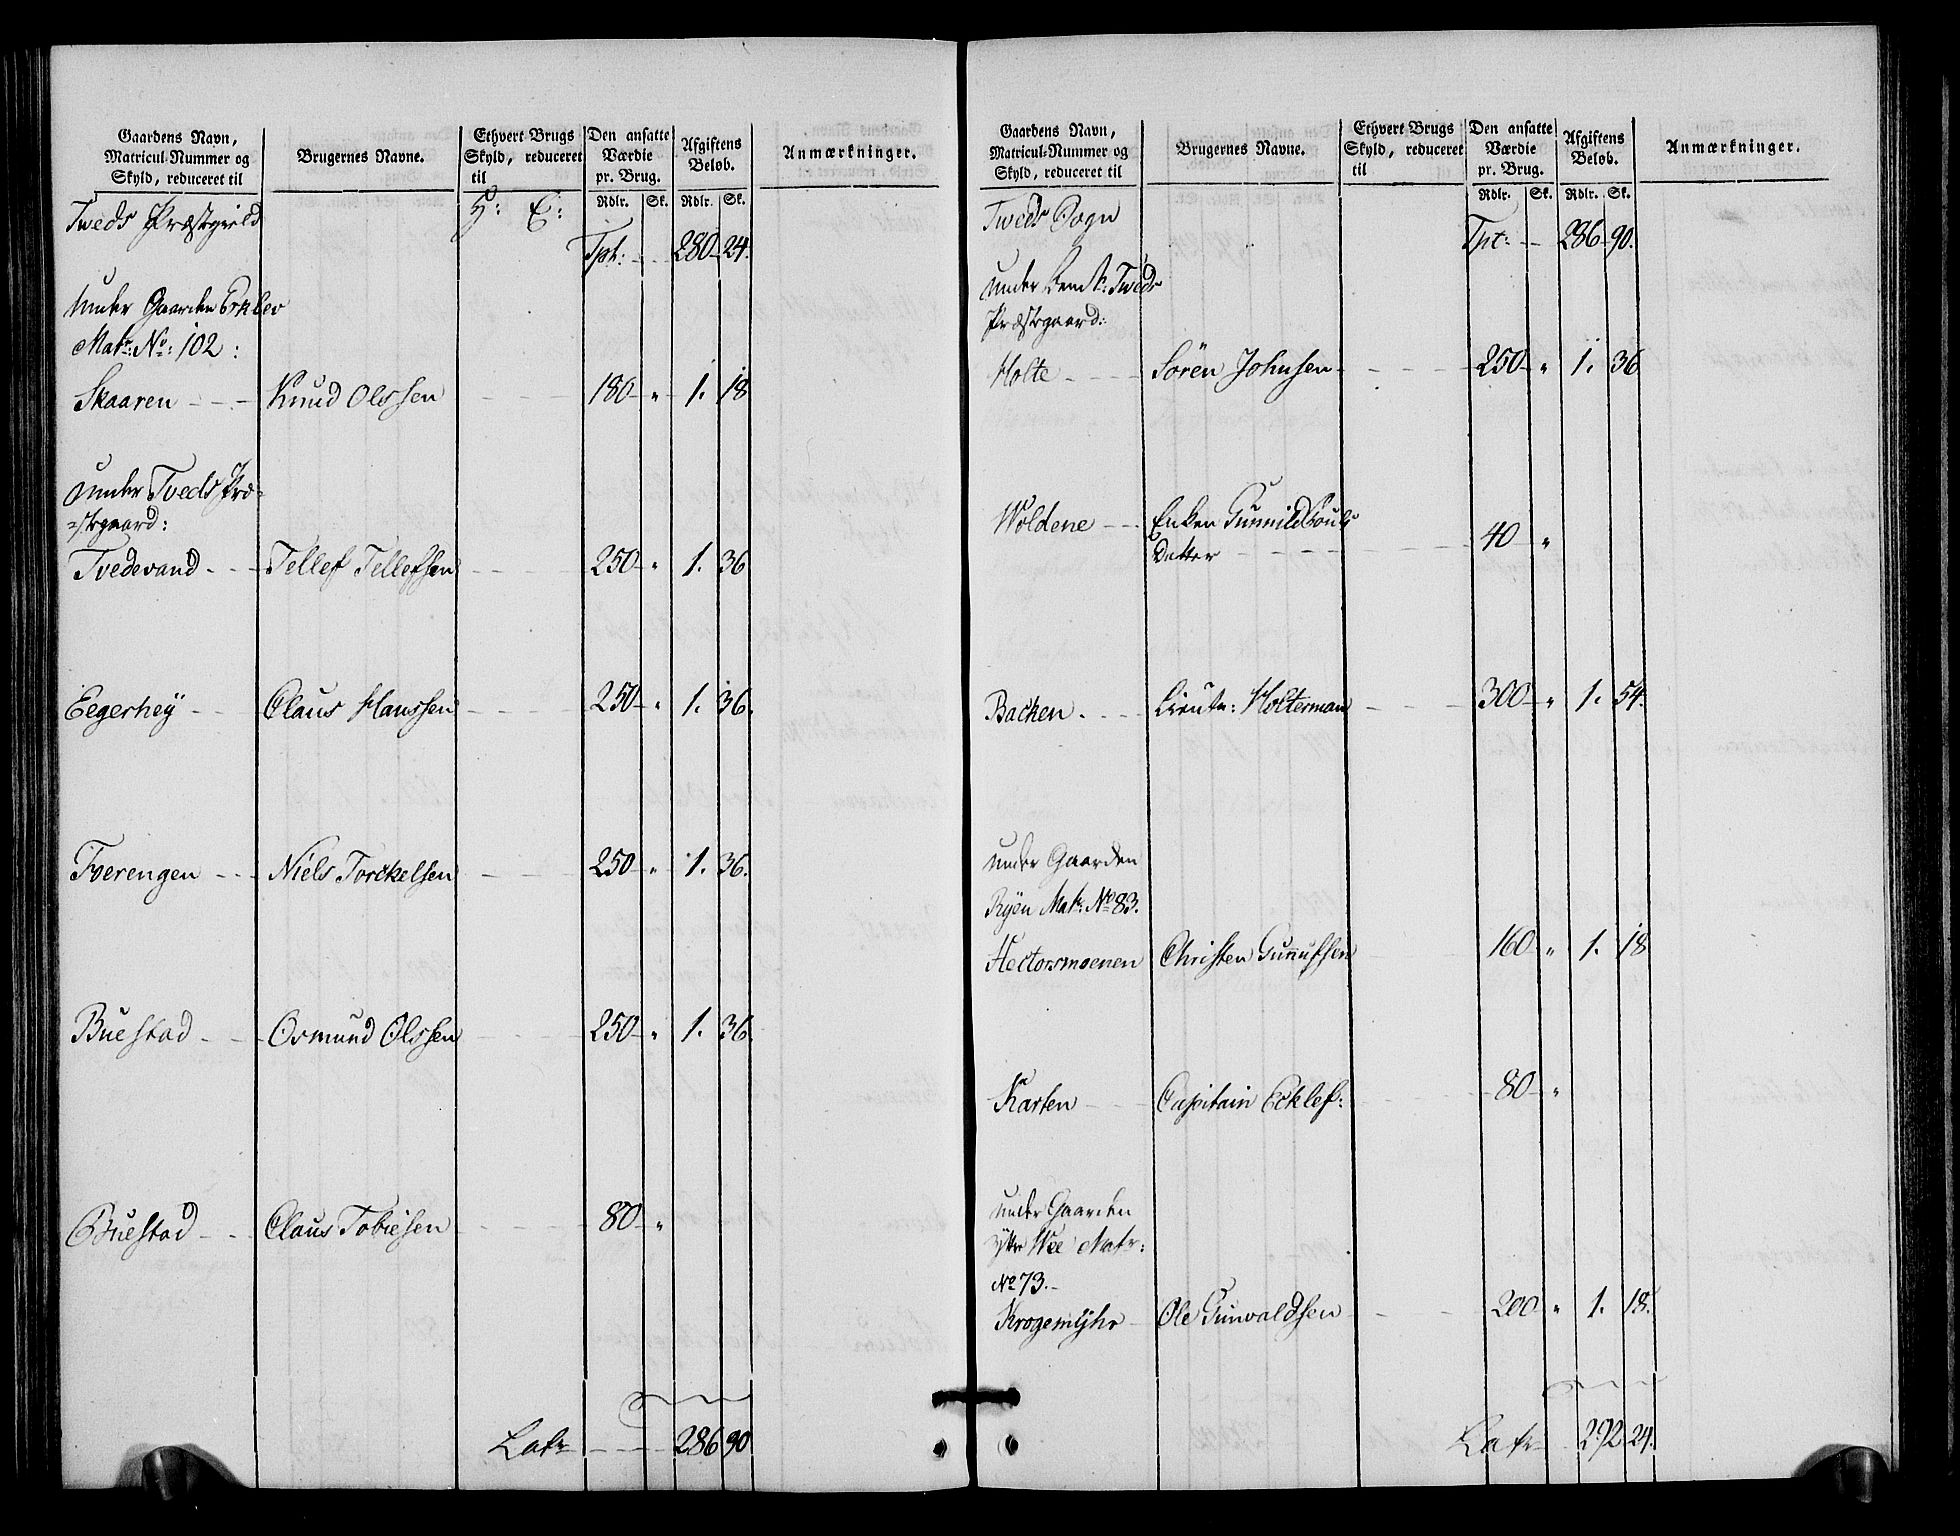 Gaardens Navn, Matricul-Nummer og Skyld, reduceret til | Brugernes Navne. | Ethvert Brugs Skyld, reduceret til | Den ansatte Værdie pr. Brug. | Afgiftens Beløb. | Anmærkninger.
Rdlr. | Sk. | Rdlr. | Sk.
Tweds Præstegield
H: E:
Tpt: 280 24.
Under Gaarden Ecklev
Matr: No: 102:
Skaaren Knud Olssen 180 " 1. 18
under Tveds Præ-
-stegaard:
Tvedevand Tellef Tellefsen 250 " 1. 36
Eegerhey Claus Hanssen 250 " 1. 36.
Tverengen Niels Torckelsen 250 " 1. 36.
Buestad Osmund Olssen 250 " 1. 36.
Buestad Claus Tobiesen 80 "
Latr 286 90
Gaardens Navn, Matricul-Nummer og Skyld, reduceret til | Brugernes Navne. | Ethvert Brugs Skyld, reduceret til | Den ansatte Værdie pr. Brug. | Afgiftens Beløb. | Anmærkninger.
Rdlr. | Sk. | Rdlr. | Sk.
Tweds Sogn
Tpt: 286 90.
under Tweds
Præstegaard:
Holte Sören Johnsen 250 " 1. 36
Woldene Enken Gunnild
Datter 40 "
Backen Lieutn: Holterman 300 " 1. 54.
under Gaarden
Ryen Matr: No 83.
Hectorsmoenen Christen Gunnufsen 160 " 1. 18
Karten Capitain Ecklef: 80 "
under Gaarden
yttre Wee Matr:
No 73.
Krogemyhr Ole Gunvaldsen 200 " 1. 18.
Latr 292 24.